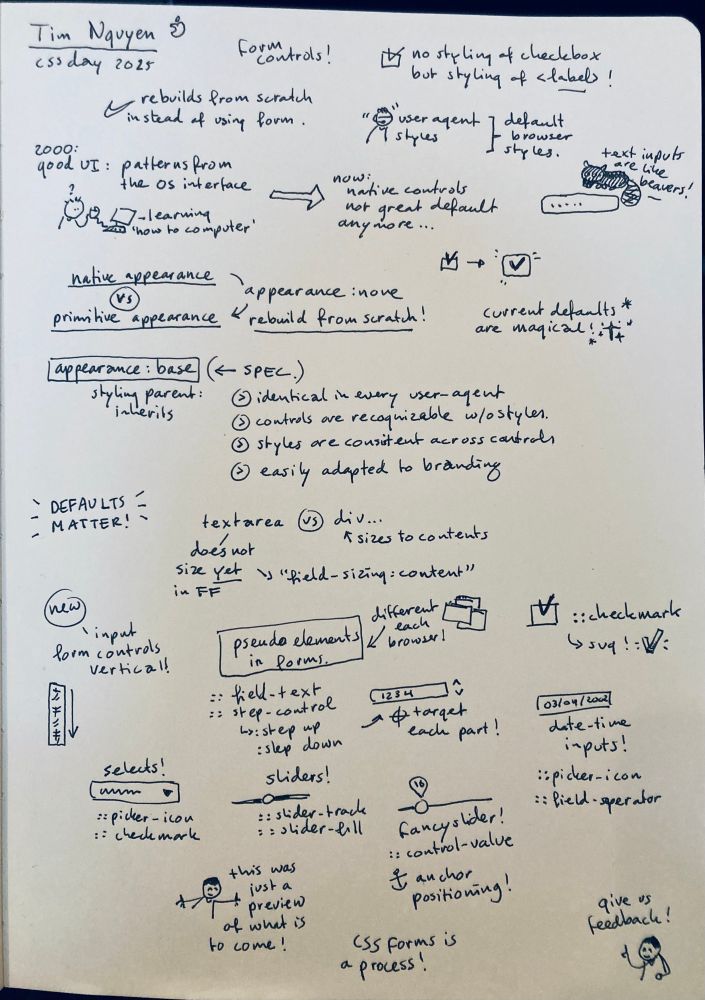 Tim Nguyen
css day 2025
Form
controls!
no styling of checkbox
but styling of <label>!
rebuilds from scratch
instead of using form.
"user agent"
styles
default
browser
styles.
2000:
good UI: patterns from
the OS interface
?
learning
'how to computer'
now:
native controls
not great default
anymore...
text inputs
are like
beavers!
.....
native appearance
vs
primitive appearance
appearance: none
rebuild from scratch!
current defaults
are magical!
appearance: base
(← SPEC.)
styling parent:
inherits
> identical in every user-agent
> controls are recognizable w/o styles.
> styles are consitent across controls
> easily adapted to branding
DEFAULTS
MATTER!
textarea vs div...
sizes to contents
does not
size yet
in FF
"field-sizing: content"
new
input
form controls
vertical!
pseudo elements
in forms.
different
each
browser!
::checkmark
svg!
:: field-text
:: step-control
:: step up
: step down
1234
target
each part!
03/04/2002
date-time
inputs!
:: picker-icon
:: field-seperator
selects!
:: picker-icon
:: checkmark
sliders!
:: slider-track
:: slider-fill
16
fancy slider!
:: control-value
anchor
positioning!
this was
just a
preview
of what is
to come!
CSS Forms is
a process!
give us
feedback!